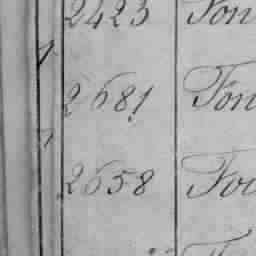 2423 Fon
2681 Fon
2658 Foo